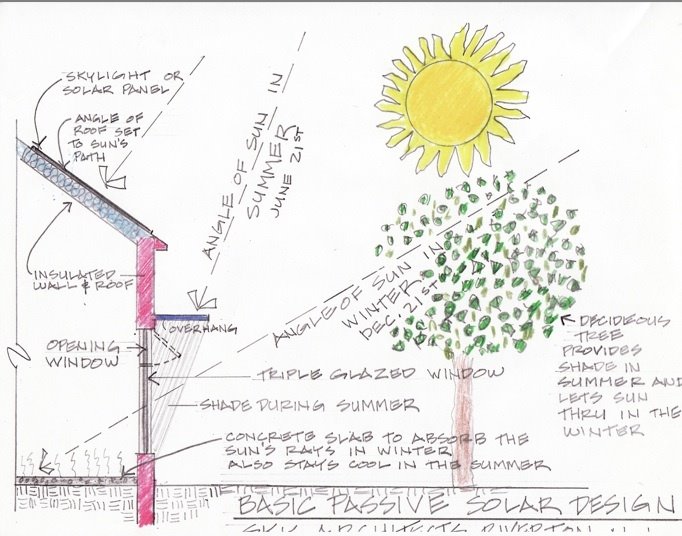 SKYLIGHT OR
SOLAR PANEL
ANGLE OF
ROOF SET
TO SUN'S
PATH
ANGLE OF SUN IN
SUMMER
JUNE 21ST
INSULATED
WALL & ROOF
OVERHANG
ANGLE OF SUN IN
WINTER
DEC. 21ST
OPENING
WINDOW
TRIPLE GLAZED WINDOW
SHADE DURING SUMMER
DECIDIEOUS
TREE
PROVIDES
SHADE IN
SUMMER AND
LETS SUN
THRU IN THE
WINTER
CONCRETE SLAB TO ABSORB THE
SUN'S RAYS IN WINTER
ALSO STAYS COOL IN THE SUMMER
BASIC PASSIVE SOLAR DESIGN
ARCHITECTS RIVERTON